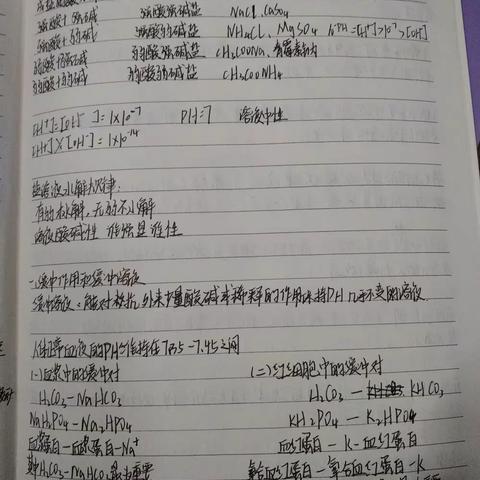 强酸+强碱 强酸强碱盐 NaCl.CaSO4
强酸+弱碱 强酸弱碱盐 NH4Cl、MgSO4 PH=[H+]>10-7>[OH-]
弱酸+强碱 弱酸强碱盐 CH3COONa、青霉素钠
弱酸+弱碱 弱酸弱碱盐 CH3COONH4
[H+]=[OH-]=1×10-7 PH=7 溶液中性
[H+]×[OH-]=1×10-14
盐溶液水解规律:
有弱水解,无弱不水解
溶液酸碱性 谁强显谁性
一.缓冲作用和缓冲溶液
缓冲溶液:能对抗外来少量酸碱或稀释的作用保持PH几乎不变的溶液.
人体正常血液的PH维持在7.35-7.45之间
(一)血浆中的缓冲对 (二)红细胞中的缓冲对
H2CO3-NaHCO3 H2CO3-KHCO3
NaH2PO4-Na2HPO4 KH2PO4-K2HPO4
血浆蛋白-血浆蛋白-Na+ 血红蛋白-K-血红蛋白
其中H2CO3-NaHCO3最为重要 氧合血红蛋白-氧合血红蛋白-K